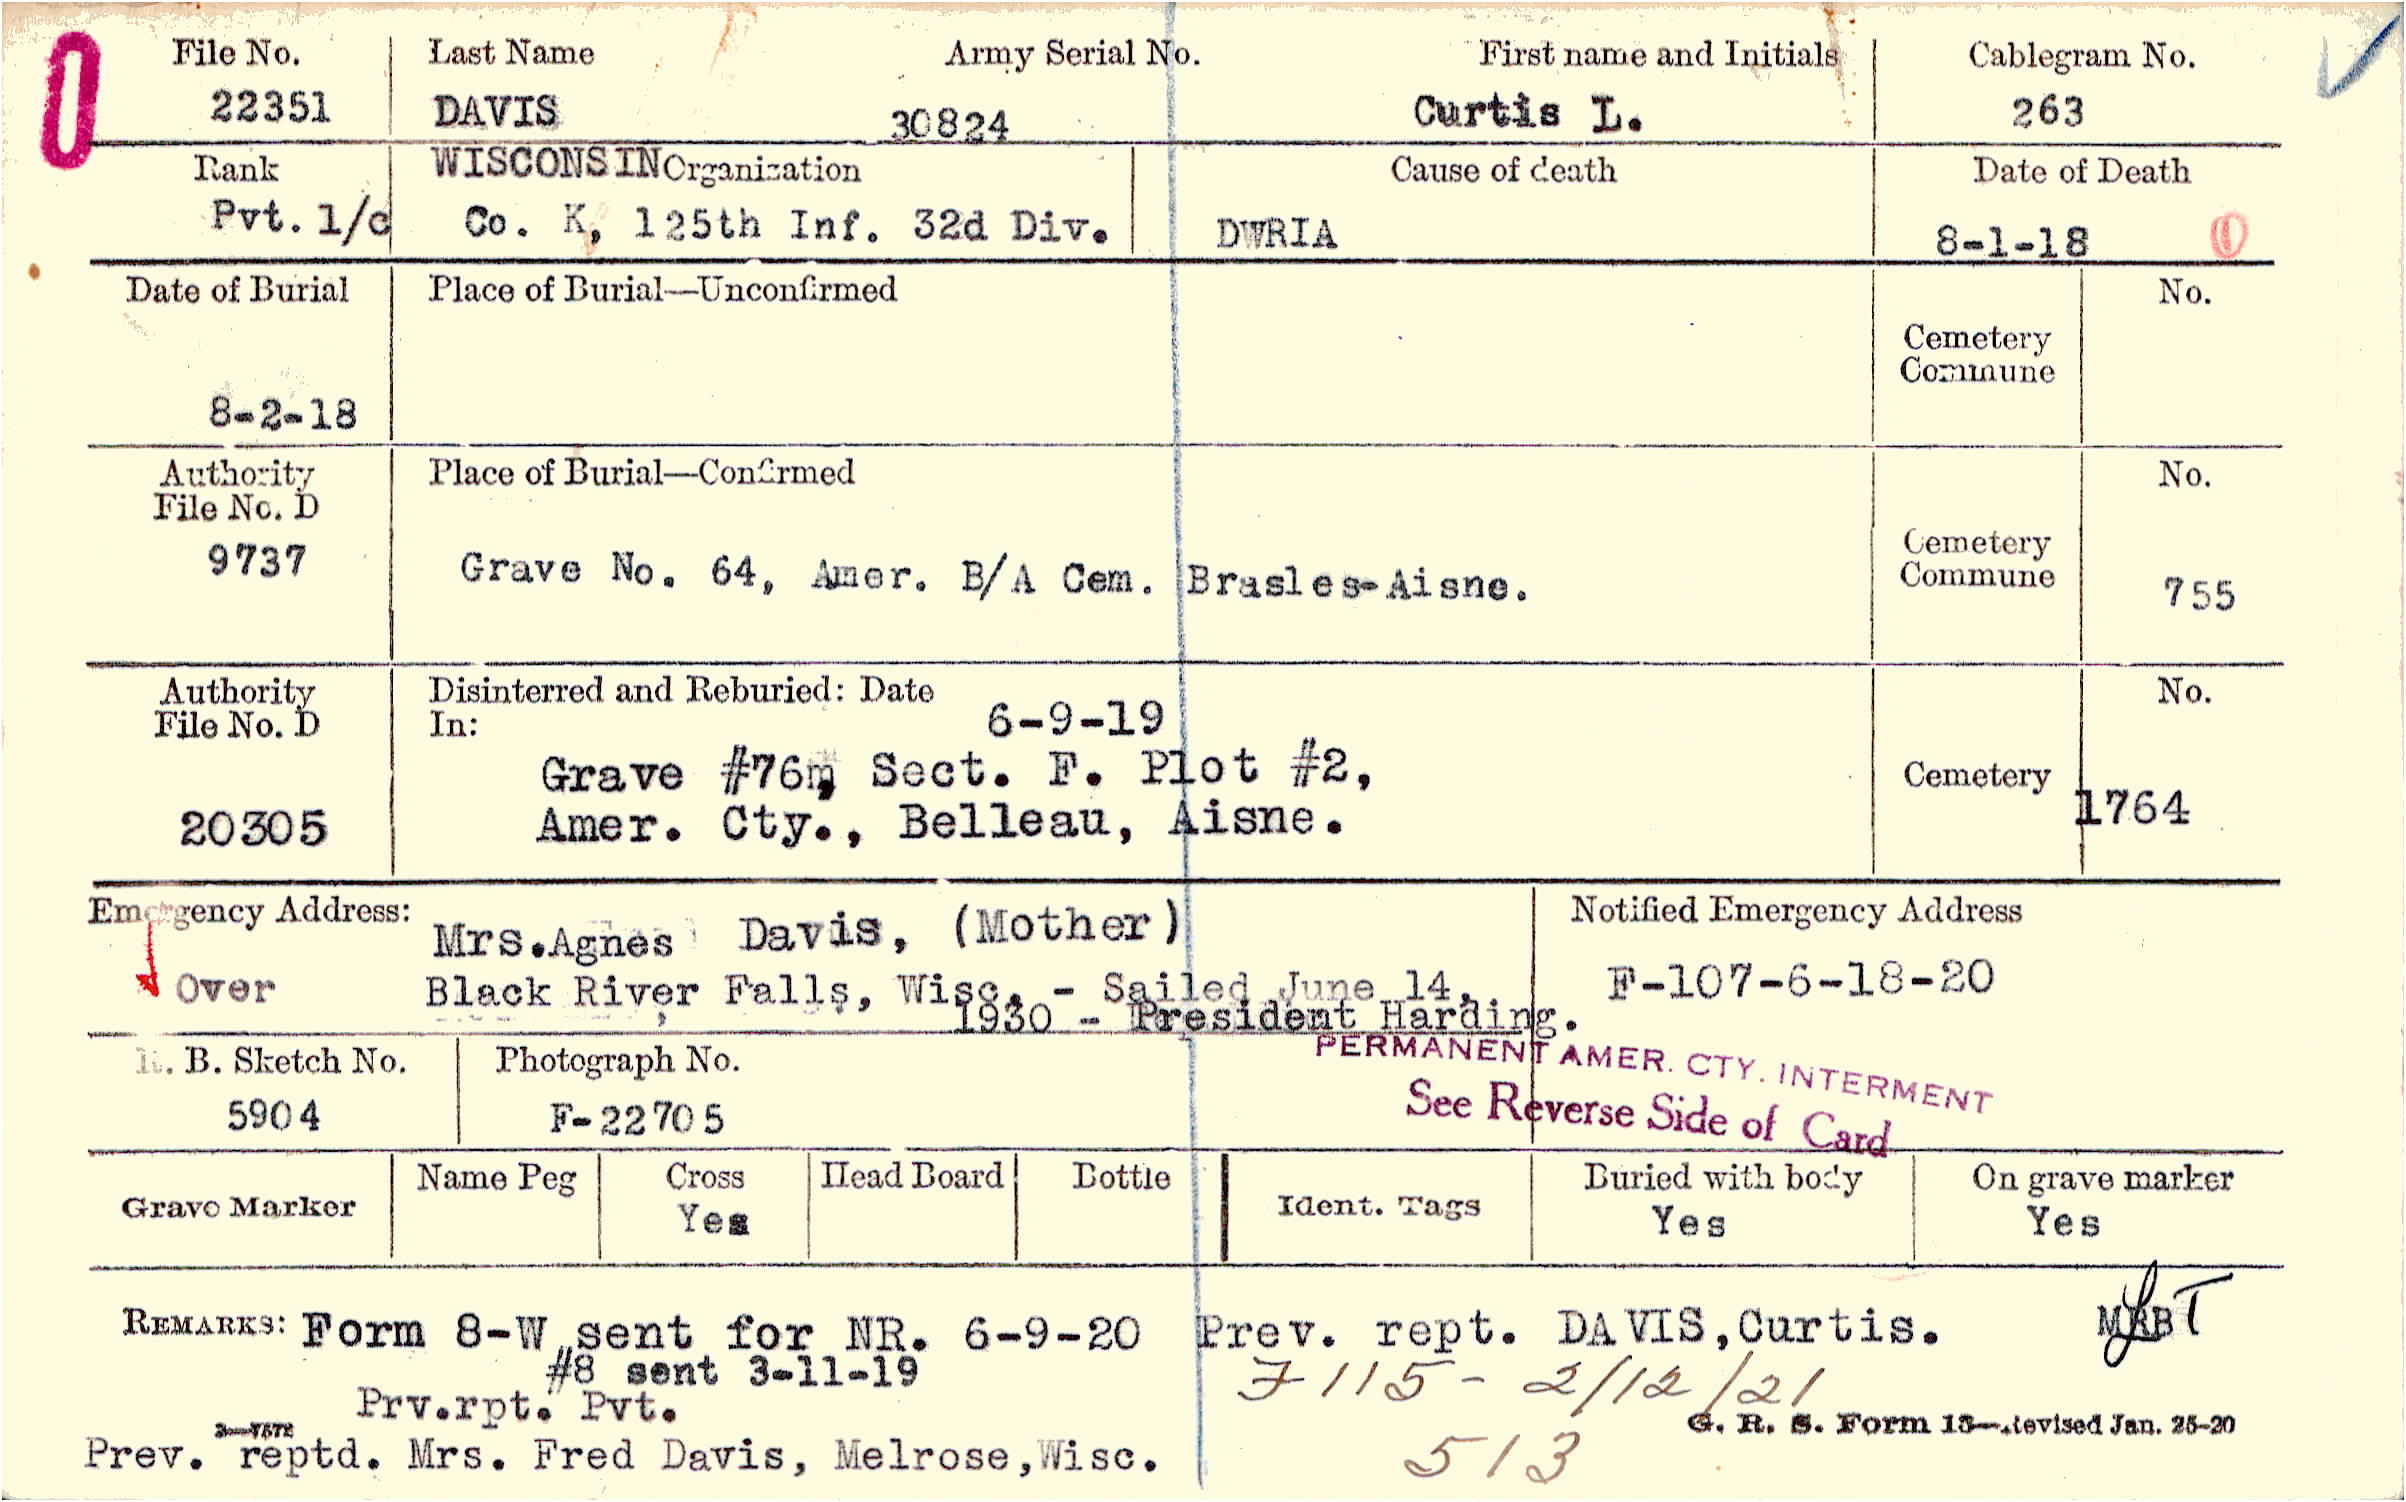 File No. Last Name Army Serial No. First name and Initials Cablegram No.
22351 DAVIS 30824 Curtis L. 263
Rank WISCONSIN Organization Cause of death Date of Death
Pvt. 1/c Co. K, 125th Inf. 32d Div. DWRIA 8-1-18
Date of Burial Place of Burial—Unconfirmed No.
Cemetery
Commune
8-2-18
Authority Place of Burial—Confirmed No.
File No. D
9737 Grave No. 64, Amer. B/A Cem. Brasles-Aisne. Cemetery
Commune 755
Authority Disinterred and Reburied: Date No.
File No. D In: 6-9-19
Grave #76, Sect. F. Plot #2, Cemetery
20305 Amer. Cty., Belleau, Aisne. 1764
Emergency Address: Mrs. Agnes Davis, (Mother) Notified Emergency Address
Over Black River Falls, Wisc. - Sailed June 14, F-107-6-18-20
1930 - President Harding.
PERMANENT AMER. CTY. INTERMENT
B. Sketch No. Photograph No.
See Reverse Side of Card
5904 F-22705
Grave Marker Name Peg Cross Head Board Bottle Ident. Tags Buried with body On grave marker
Yes Yes Yes
REMARKS: Form 8-W sent for NR. 6-9-20 Prev. rept. DAVIS, Curtis.
#8 sent 3-11-19 F115- 2/12/21
Prv.rpt. Pvt.
G. R. S. Form 13—Revised Jan. 25-20
Prev. reptd. Mrs. Fred Davis, Melrose, Wisc. 513